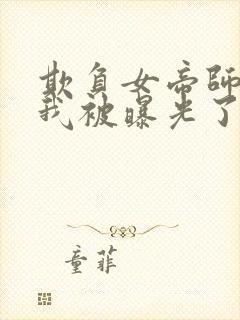 欺负女帝師
我被曝光了
童菲